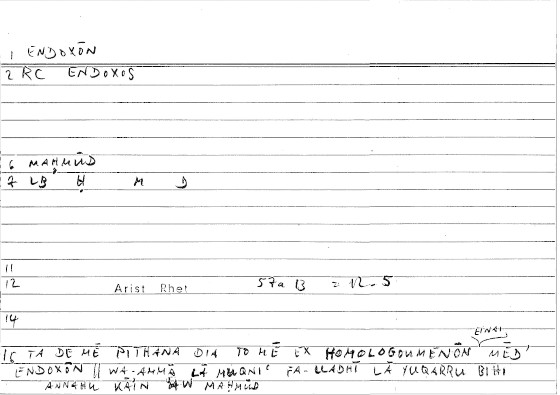 1 ENDOXŌN
2 RC ENDOXOS
6 MAḤMŪD
7 LB Ḥ M D
11
12 Arist Rhet 57a 13 = 12.5
14
EINAI
15 TA DE MĒ PITHANA DIA TO MĒ EX HOMOLOGOUMENŌN MĒD'
ENDOXŌN || WA-AMMĀ LĀ MUQNIʿ FA-LLADHĪ LĀ YUQARRU BIHI
ANNAHU KĀIN AW MAḤMŪD